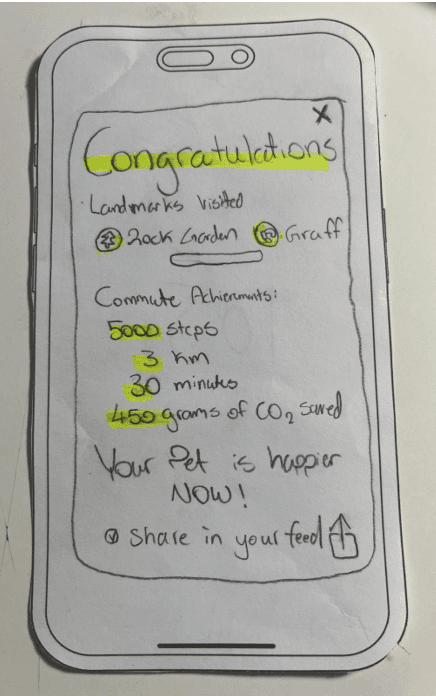 X
Congratulations
Landmarks Visited
Rock Garden Graff
Commute Achievements:
5000 steps
3 km
30 minutes
450 grams of CO₂ saved
Your Pet is happier
NOW!
share in your feed